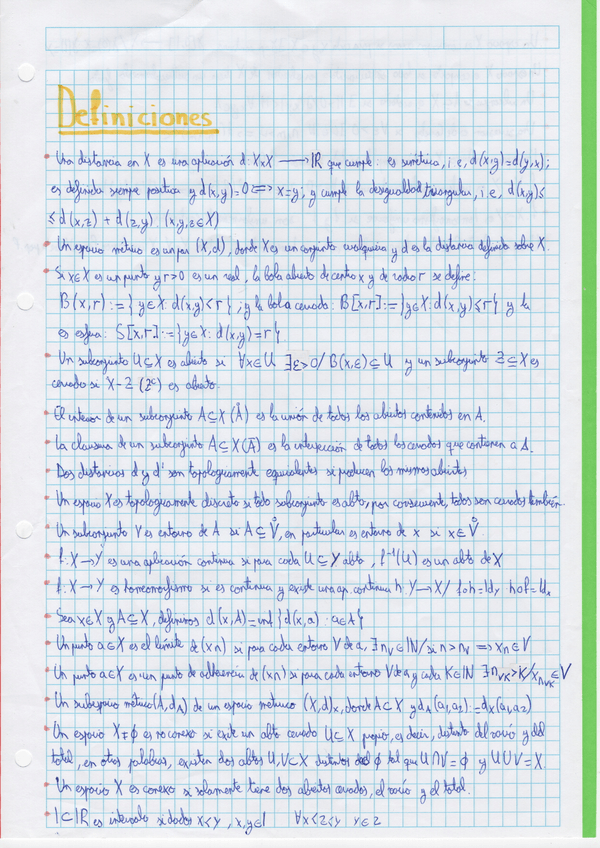 Definiciones
• Una distancia en X es una aplicación d: XxX ⟶ IR que cumple: es simétrica, i.e, d(x,y)=d(y,x);
es definida siempre positiva y d(x,y)=0 ⟺ x=y; y cumple la desigualdad triangular, i.e, d(x,y)≤
≤ d(x,z) + d(z,y). (x,y,z∈X)
• Un espacio métrico es un par (X,d), donde X es un conjunto cualquiera y d es la distancia definida sobre X.
• Si x∈X es un punto y r>0 es un real, la bola abierta de centro x y de radio r se define:
B(x,r) := { y∈X: d(x,y)<r } ; y la bola cerrada: B[x,r] := {y∈X: d(x,y)≤r} y la
es esfera: S[x,r] := {y∈X: d(x,y)=r}
• Un subconjunto U⊆X es abierto si ∀x∈U ∃ε>0/ B(x,ε)⊆U y un subconjunto Z⊆X es
cerrado si X-Z (Zᶜ) es abierto.
• El interior de un subconjunto A⊆X (Å) es la unión de todos los abiertos contenidos en A.
• La clausura de un subconjunto A⊆X (Ā) es la intersección de todos los cerrados que contienen a A.
• Dos distancias d y d' son topologicamente equivalentes si producen los mismos abiertos
• Un espacio X es topologicamente discreto si todo subconjunto es abto, por consecuente, todos son cerrados también.
• Un subconjunto V es entorno de A si A⊆V̊, en particular es entorno de x si x∈V̊
• f: X→Y es una aplicación continua si para cada U⊆Y abto, f⁻¹(U) es un abto de X
• f: X→Y es homeomorfismo si es continua y existe una ap. continua h: Y→X/ foh=Idy hof=Idx
• Sea x∈X y A⊆X, definimos d(x,A)=inf{d(x,a): a∈A}
• Un punto a∈X es el límite de (xn) si para cada entorno V de a, ∃nv∈IN/ si n>nv ⟹ xn∈V
• Un punto a∈X es un punto de adherencia de (xn) si para cada entorno V de a y cada K∈IN ∃nVK>K/xnVK∈V
• Un subespacio métrico (A,dA) de un espacio métrico (X,d)x, donde A⊂X y dA(a1,a2):=dx(a1,a2)
• Un espacio X≠ϕ es no conexo si existe un abto cerrado U⊆X propio, es decir, distinto del vacío y del
total, en otras palabras, existen dos abtos U,V⊂X distintos de ϕ tal que U∩V=ϕ y U∪V=X.
• Un espacio X es conexo si solamente tiene dos abiertos cerrados, el vacío y el total.
• I⊂IR es intervalo si dados x<y, x,y∈I ∀x<z<y y∈z